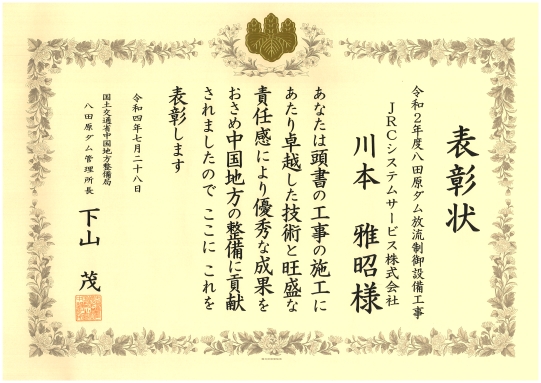 表彰状
令和2年度八田原ダム放流制御設備工事
JRCシステムサービス株式会社
川本 雅昭様
あなたは頭書の工事の施工に
あたり卓越した技術と旺盛な
責任感により優秀な成果を
おさめ中国地方の整備に貢献
されましたので ここに これを
表彰します
令和四年七月二十八日
国土交通省中国地方整備局
八田原ダム管理所長
下山 茂